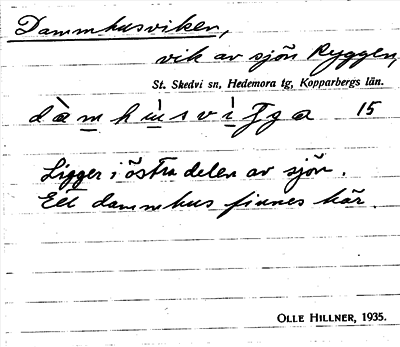 Dammhusviken,
vik av sjön Ryggen,
St. Skedvi sn, Hedemora tg, Kopparbergs län.
15
Ligger i östra delen av sjön.
Ett dammhus finnes här.
OLLE HILLNER, 1935.